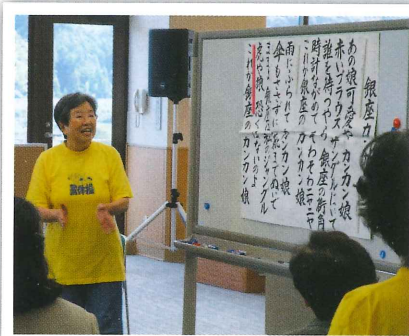 銀座カ
あの娘可愛や カンカン娘
赤いブラウス サンダルはいて
誰を待つやら 銀座の街角
時計ながめて そわそわニヤニヤ
これが銀座の カンカン娘
雨にふられて カンカン娘
傘もささずに 靴までぬいで
ままよ銀座は 私のジャングル
虎や狼 恐くはないのよ
これが銀座の カンカン娘
体操